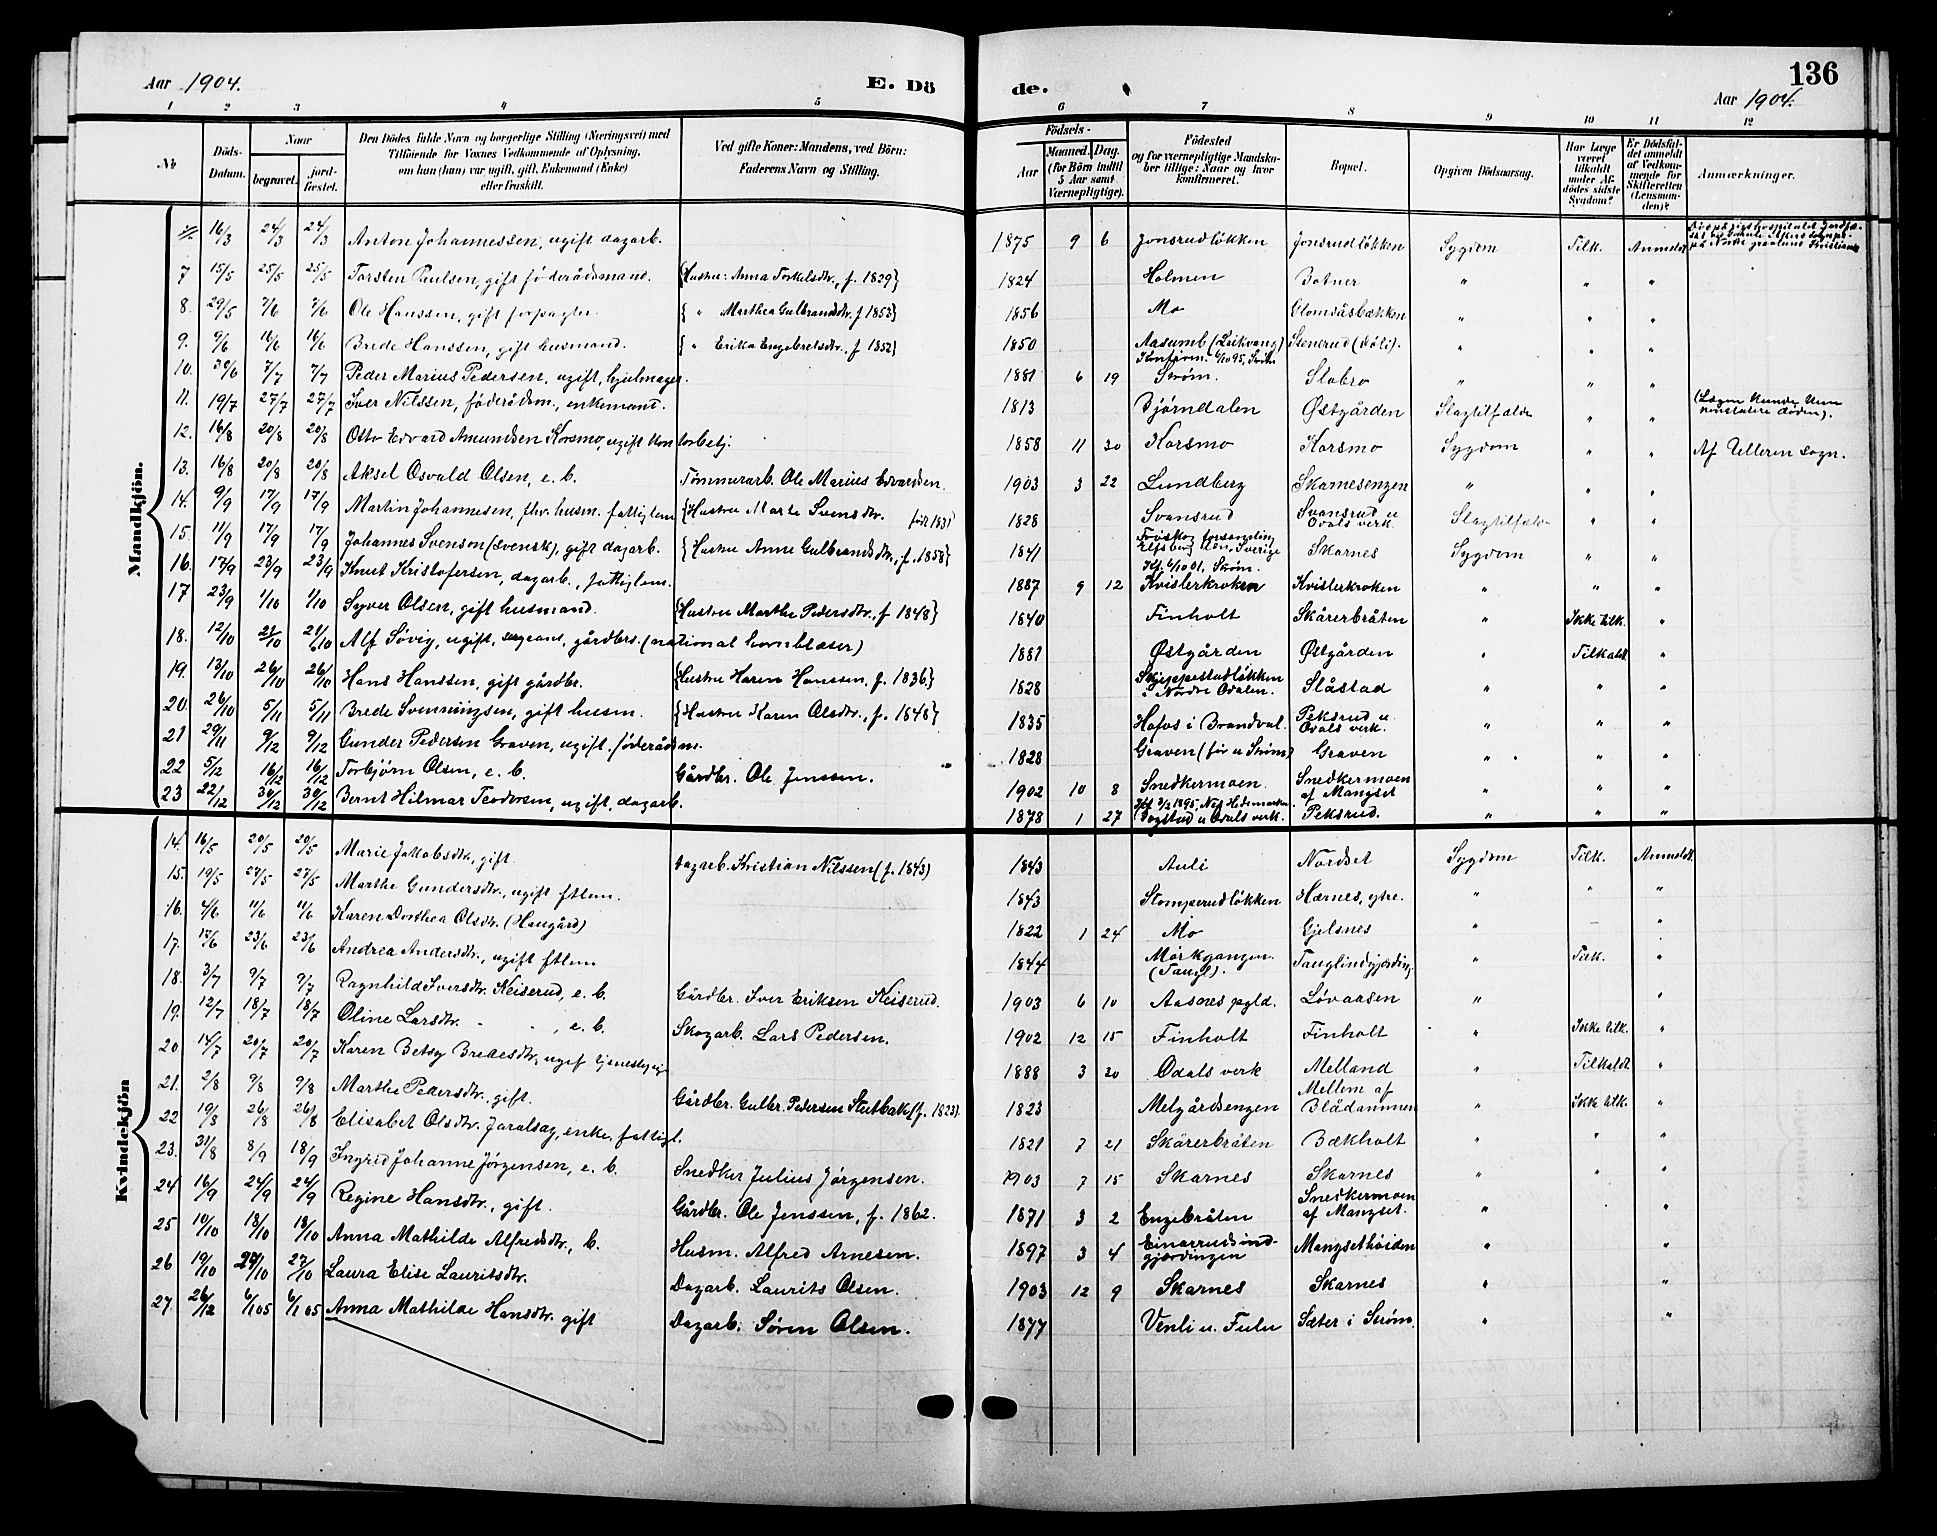 Aar 1904. E. Dö
de. 136
Aar 1904.
1 2 3 4 5 6 7 8 9 10 11 12
No Döds-Datum. Naar begravet. jordfæstet. Den Dödes fulde Navn og borgerlige Stilling (Næringsvei) med Tilföiende for Voxnes Vedkommende af Oplysning, om hun (han) var ugift, gift, Enkemand (Enke) eller fraskilt. Ved gifte Koner: Mandens, ved Börn: Faderens Navn og Stilling.
Födsels- Aar Maaned. Dag. (for Börn indtil 5 Aar samt Værnepligtige). Födested og for værnepligtige Mandskaber tillige: Naar og hvor konfirmeret. Bopæl. Opgiven Dödsaarsag. Har Læge været tilkaldt under Afdödes sidste Sygdom? Er Dödsfaldet anmeldt af Vedkommende for Skifteretten (Lensmanden)? Anmærkninger.
Mandkjön.
16/3 24/3 24/3 Anton Johannessen, ugift dagarb. 1875 9 6 Jonsrudlökken Jonsrudlökken Sygdom Tilk. Anmeldt
7 15/5 25/5 25/5 Torsten Paulsen, gift föderådsmand. {Hustru: Anna Torkelsdtr., f. 1829} 1824 Holmen Botner " " "
8. 29/5 7/6 7/6 Ole Hanssen, gift forpagter. { " Marthea Gulbrandsdtr. f 1853} 1856 Mo Glomsåsbækken " " "
9. 9/6 16/6 16/6 Brede Hanssen, gift husmand. { " Erika Engebretsdtr., f 1852} 1850 Aasumb (Leikvang) Stenrud (Döli). " " "
10. 30/6 7/7 7/7 Peder Marius Pedersen, ugift, hjulmager. 1881 6 19 Konfirm. 6/10 95, Ström. Slobro " " "
11. 19/7 27/7 27/7 Iver Nilssen, föderådsm., enkemand. 1813 Bjørndalen Østgården Slagtilfælde " " (Lægen kunde kun konstatere döden).
12. 16/8 20/8 20/8 Otto Edvard Amundsen Korsmo, ugift kontorbetj. 1858 11 30 Korsmo Korsmo Sygdom " " Af Ulleren sogn.
13. 16/8 20/8 20/8 Aksel Osvald Olsen, e. b. Tømmerarb. Ole Marius Edvardsen. 1903 3 22 Lundberg Skarnesengen " " "
14. 9/9 17/9 17/9 Martin Johannesen, fhv. husm. fattiglem {Hustru Marte Svensdtr. født 1831} 1828 Svansrud Svansrud u Odals verk. Slagtilfælde " "
15. 11/9 17/9 17/9 Johannes Svenson (svensk), gift dagarb. {Hustru Anne Gulbrandsdtr., f. 1858} 1841 forsamling Elfsb. Sverige Skarnes Sygdom " "
16. 17/9 23/9 23/9 Knut Kristofersen, dagarb., fattiglem. 1887 9 12 Kf. 6/10 01, Strøm. Kvislerkroken Kvislerkroken " " "
17 23/9 1/10 1/10 Syver Olsen, gift husmand. {Hustru Marthe Pedersdtr., f 1848} 1840 Finholt Skårerbråten " Ikke tilk. "
18. 12/10 21/10 21/10 Alf Søvig, ugift, sergeant, gårdbrs. (national hornblæser) 1881 Østgården Østgården " Tilkaldt "
19. 13/10 26/10 26/10 Hans Hanssen, gift gårdbr. {Hustru Karen Hanssen, f. 1836} 1828 Skjeppestadlökken i Nordre Odalen. Slåstad " " "
20. 26/10 5/11 5/11 Brede Svenningsen, gift husm. {Hustru Karen Olsdtr., f. 1848} 1835 Hofos i Brandval. Peksrud u. Odals verk. " " "
21 29/11 9/12 9/12 Gunder Pedersen Graven, ugift. föderådsm. 1828 Graven (för u Ström) Graven " " "
22 5/12 16/12 16/12 Torbjörn Olsen, e. b. Gårdbr. Ole Jenssen. 1902 10 8 Snedkermoen. Snedkermoen af Mangset " " "
23 22/12 30/12 30/12 Bernt Hilmar Teodorsen, ugift, dagarb. 1878 1 27 Kf. 3/2 1895, Næs Hedemarken. Dogstad u Odals verk. Peksrud. " " "
Kvindekjön
14. 16/5 20/5 20/5 Marie Jakobsdtr, gift. Dagarb. Kristian Nilssen (f. 1843) 1843 Auli Nordset Sygdom Tilk. Anmeldt.
15. 19/5 27/5 27/5 Marthe Gundersdtr., ugift ftlem. 1843 Stomperudlökken Hærnes, ytre. " " "
16. 4/6 11/6 11/6 Karen Dorthea Olsdtr. (Haugård) 1822 1 24 Mo Gjelsnes " – "
17. 17/6 23/6 23/6 Andrea Andersdtr., ugift ftlem 1847 Mörkgangen. (Taugl). Tauglindgjerding. " Tilk. "
18. 3/7 9/7 9/7 Ragnhild Iversdtr. Keiserud, e. b. Gårdbr. Iver Eriksen Keiserud. 1903 6 10 Aasnes pgld. Løvaasen " "
19. 12/7 18/7 18/7 Oline Larsdtr. - - , e. b. Skogarb. Lars Pedersen. 1902 12 15 Finholt Finholt " Ikke tilk. "
20 14/7 20/7 20/7 Karen Betsy Bredesdtr., ugift tjenestepige 1888 3 20 Odals verk Melland " Tilkaldt. "
21. 2/8 9/8 9/8 Marthe Pedersdtr., gift. Gårdbr. Gulbr. Pedersen Stutbak (f. 1823). 1823 Melgårdsengen Mellem af Blådammen " Ikke tilk. "
22 19/8 26/8 26/8 Elisabet Olsdtr. Jaralsag, enke, fattigl. 1821 7 21 Skårerbråten Bækholt " " "
23. 31/8 8/9 18/9 Ingrid Johanne Jörgensen, e. b. Snedker Julius Jörgensen. 1903 7 15 Skarnes Skarnes " " "
24 16/9 24/9 24/9 Regine Hansdtr., gift. Gårdbr. Ole Jenssen, f. 1862. 1871 3 2 Engebråten Snedkermoen af Mangset. " "
25 10/10 18/10 18/10 Anna Mathilde Alfredsdtr., b. Husm. Alfred Arnesen. 1897 3 4 Einarrudsindgjærdingen Mangsethöiden " "
26 19/10 27/10 27/10 Laura Elise Lauritsdtr. Dagarb. Laurits Olsen. 1903 12 9 Skarnes Skarnes " "
27. 26/12 6/1 05 6/1 05 Anna Mathilde Hansdtr. gift Dagarb. Sören Olsen. 1877 Venli u. Fulu Sæter i Ström. " "